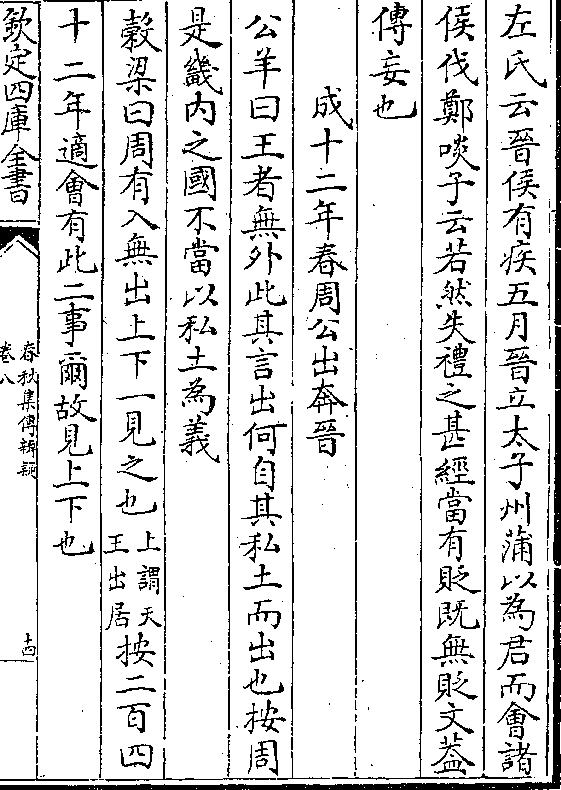 左氏云晉侯有疾五月晉立太子州蒲以為君而會諸
侯伐鄭啖子云若然失禮之甚經當有貶既無貶文葢
傳妄也
成十二年春周公出奔晉
公羊曰王者無外此其言出何自其私土而出也按周
是畿内之國不當以私土為義
穀梁曰周有入無出上下一見之也上謂天王出居按二百四
十二年適會有此二事爾故見上下也
欽定四庫全書
春秋集傳辨疑
卷八
十四